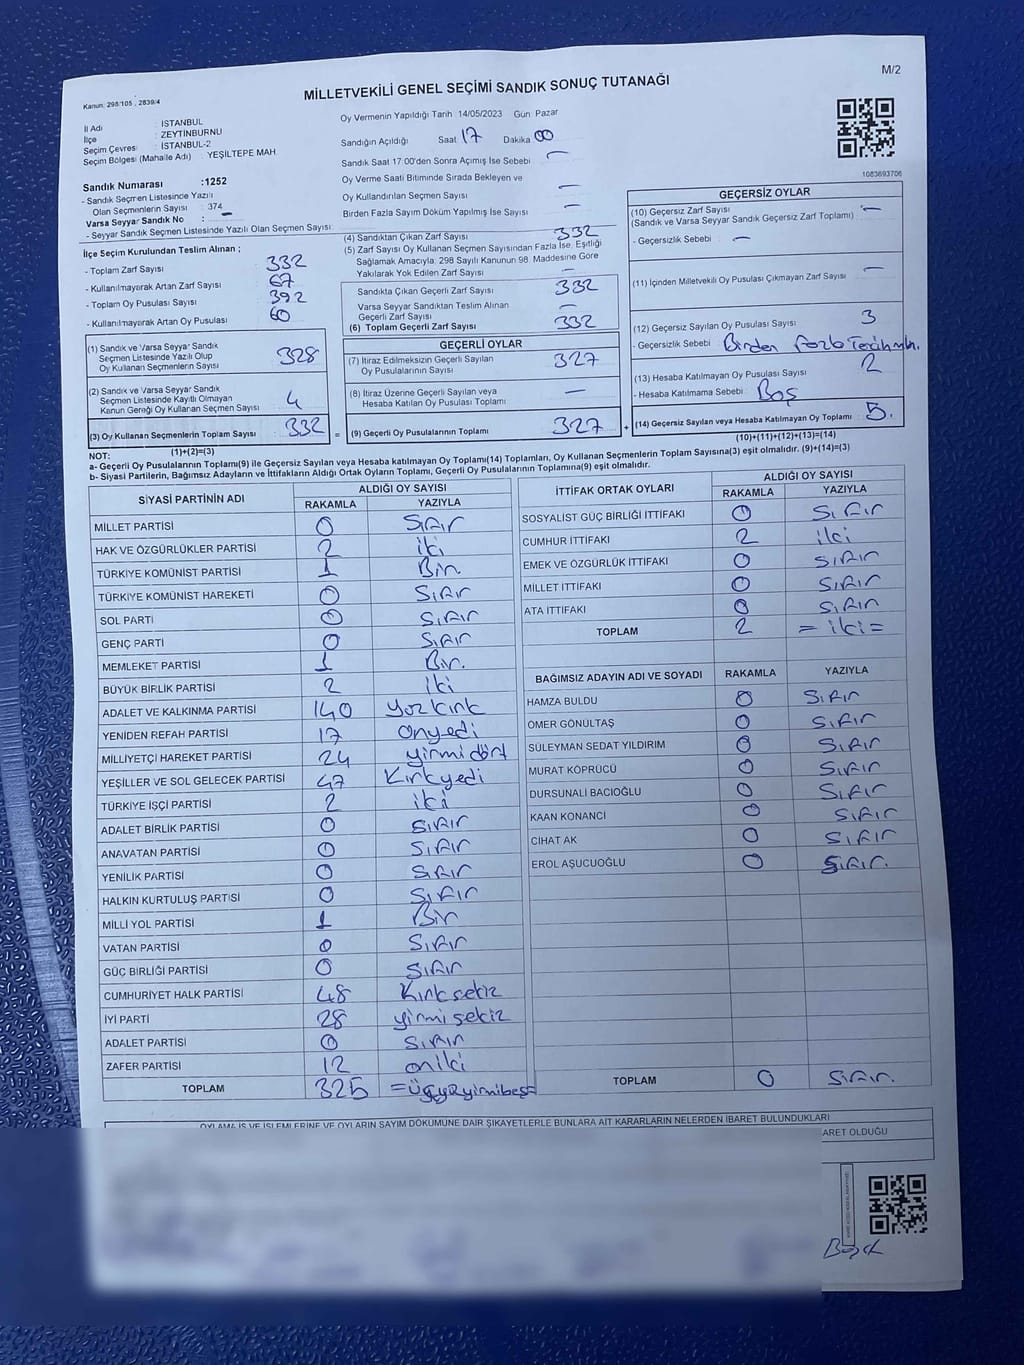 M/2
Kanun: 298/105 , 2839/4
MİLLETVEKİLİ GENEL SEÇİMİ SANDIK SONUÇ TUTANAĞI
İl Adı : İSTANBUL
İlçe : ZEYTİNBURNU
Seçim Çevresi : İSTANBUL-2
Seçim Bölgesi (Mahalle Adı) : YEŞİLTEPE MAH.
Sandık Numarası :1252
- Sandık Seçmen Listesinde Yazılı
Olan Seçmenlerin Sayısı : 374
Varsa Seyyar Sandık No : —
- Seyyar Sandık Seçmen Listesinde Yazılı Olan Seçmen Sayısı:
Oy Vermenin Yapıldığı Tarih 14/05/2023 Gün: Pazar
Sandığın Açıldığı Saat 17 Dakika 00
Sandık Saat 17:00'den Sonra Açımış İse Sebebi —
Oy Verme Saati Bitiminde Sırada Bekleyen ve
Oy Kullandırılan Seçmen Sayısı —
Birden Fazla Sayım Döküm Yapılmış İse Sayısı —
1083693706
İlçe Seçim Kurulundan Teslim Alınan ;
- Toplam Zarf Sayısı 332
- Kullanılmayarak Artan Zarf Sayısı 67
- Toplam Oy Pusulası Sayısı 392
- Kullanılmayarak Artan Oy Pusulası 60
(1) Sandık ve Varsa Seyyar Sandık
Seçmen Listesinde Yazılı Olup
Oy Kullanan Seçmenlerin Sayısı 328
(2) Sandık ve Varsa Seyyar Sandık
Seçmen Listesinde Kayıtlı Olmayan
Kanun Gereği Oy Kullanan Seçmen Sayısı 4
(3) Oy Kullanan Seçmenlerin Toplam Sayısı 332
(1)+(2)=(3)
(4) Sandıktan Çıkan Zarf Sayısı 332
(5) Zarf Sayısı Oy Kullanan Seçmen Sayısından Fazla İse, Eşitliği
Sağlamak Amacıyla; 298 Sayılı Kanunun 98. Maddesine Göre
Yakılarak Yok Edilen Zarf Sayısı —
Sandıkta Çıkan Geçerli Zarf Sayısı 332
Varsa Seyyar Sandıktan Teslim Alınan
Geçerli Zarf Sayısı —
(6) Toplam Geçerli Zarf Sayısı 332
GEÇERLİ OYLAR
(7) İtiraz Edilmeksizin Geçerli Sayılan
Oy Pusulalarının Sayısı 327
(8) İtiraz Üzerine Geçerli Sayılan veya
Hesaba Katılan Oy Pusulası Toplamı —
= (9) Geçerli Oy Pusulalarının Toplamı 327 +
GEÇERSİZ OYLAR
(10) Geçersiz Zarf Sayısı —
(Sandık ve Varsa Seyyar Sandık Geçersiz Zarf Toplamı)
- Geçersizlik Sebebi : —
(11) İçinden Milletvekili Oy Pusulası Çıkmayan Zarf Sayısı —
(12) Geçersiz Sayılan Oy Pusulası Sayısı 3
- Geçersizlik Sebebi Birden fazla
(13) Hesaba Katılmayan Oy Pusulası Sayısı 2
- Hesaba Katılmama Sebebi : Boş
(14) Geçersiz Sayılan veya Hesaba Katılmayan Oy Toplamı 5.
(10)+(11)+(12)+(13)=(14)
NOT:
a- Geçerli Oy Pusulalarının Toplamı(9) ile Geçersiz Sayılan veya Hesaba katılmayan Oy Toplamı(14) Toplamları, Oy Kullanan Seçmenlerin Toplam Sayısına(3) eşit olmalıdır. (9)+(14)=(3)
b- Siyasi Partilerin, Bağımsız Adayların ve İttifakların Aldığı Ortak Oyların Toplamı, Geçerli Oy Pusulalarının Toplamına(9) eşit olmalıdır.
SİYASİ PARTİNİN ADI ALDIĞI OY SAYISI
RAKAMLA YAZIYLA
MİLLET PARTİSİ 0 Sıfır
HAK VE ÖZGÜRLÜKLER PARTİSİ 2 iki
TÜRKİYE KOMÜNİST PARTİSİ 1 Bir.
TÜRKİYE KOMÜNİST HAREKETİ 0 Sıfır
SOL PARTİ 0 Sıfır
GENÇ PARTİ 0 Sıfır
MEMLEKET PARTİSİ 1 Bir.
BÜYÜK BİRLİK PARTİSİ 2 iki
ADALET VE KALKINMA PARTİSİ 140 yüz kırk
YENİDEN REFAH PARTİSİ 17 onyedi
MİLLİYETÇİ HAREKET PARTİSİ 24 yirmi dört
YEŞİLLER VE SOL GELECEK PARTİSİ 47 Kırkyedi
TÜRKİYE İŞÇİ PARTİSİ 2 iki
ADALET BİRLİK PARTİSİ 0 Sıfır
ANAVATAN PARTİSİ 0 Sıfır
YENİLİK PARTİSİ 0 Sıfır
HALKIN KURTULUŞ PARTİSİ 0 Sıfır
MİLLİ YOL PARTİSİ 1 Bir
VATAN PARTİSİ 0 Sıfır
GÜÇ BİRLİĞİ PARTİSİ 0 Sıfır
CUMHURİYET HALK PARTİSİ 48 Kırk sekiz
İYİ PARTİ 28 yirmi sekiz
ADALET PARTİSİ 0 Sıfır
ZAFER PARTİSİ 12 oniki
TOPLAM 325 =üçyüzyirmibeş=
İTTİFAK ORTAK OYLARI ALDIĞI OY SAYISI
RAKAMLA YAZIYLA
SOSYALİST GÜÇ BİRLİĞİ İTTİFAKI 0 Sıfır
CUMHUR İTTİFAKI 2 iki
EMEK VE ÖZGÜRLÜK İTTİFAKI 0 Sıfır
MİLLET İTTİFAKI 0 Sıfır
ATA İTTİFAKI 0 Sıfır
TOPLAM 2 = iki =
BAĞIMSIZ ADAYIN ADI VE SOYADI RAKAMLA YAZIYLA
HAMZA BULDU 0 Sıfır
ÖMER GÖNÜLTAŞ 0 Sıfır
SÜLEYMAN SEDAT YILDIRIM 0 Sıfır
MURAT KÖPRÜCÜ 0 Sıfır
DURSUNALİ BACIOĞLU 0 Sıfır
KAAN KONANCİ 0 Sıfır
CİHAT AK 0 Sıfır
EROL AŞUCUOĞLU 0 Sıfır.
TOPLAM 0 Sıfır.
OYLAMA İŞ VE İŞLEMLERİNE VE OYLARIN SAYIM DÖKÜMÜNE DAİR ŞİKAYETLERLE BUNLARA AİT KARARLARIN NELERDEN İBARET BULUNDUKLARI
ARET OLDUĞU